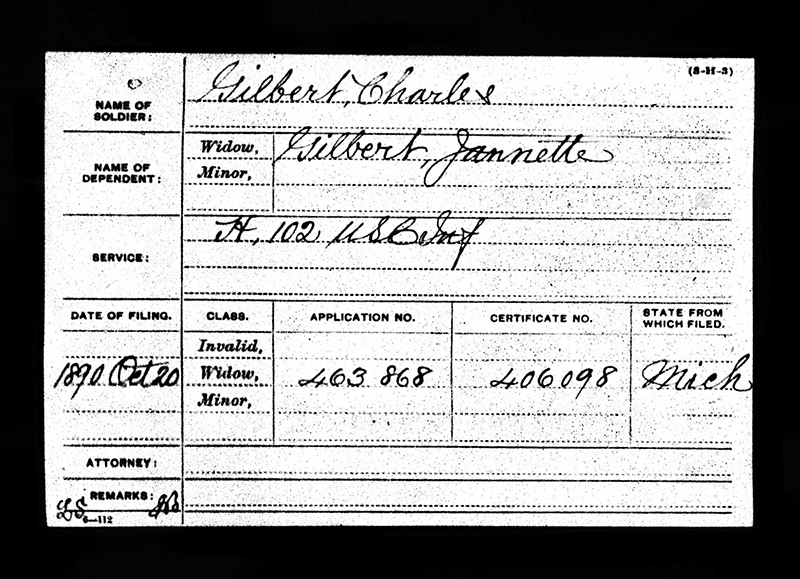 (3-H-3)
NAME OF SOLDIER: Gilbert, Charles
NAME OF DEPENDENT: Widow, Gilbert, Jannette
Minor,
SERVICE: H, 102 USC Inf
DATE OF FILING. CLASS. APPLICATION NO. CERTIFICATE NO. STATE FROM WHICH FILED.
Invalid,
1890 Oct 20 Widow, 463 868 406098 Mich
Minor,
ATTORNEY:
REMARKS:
6—112